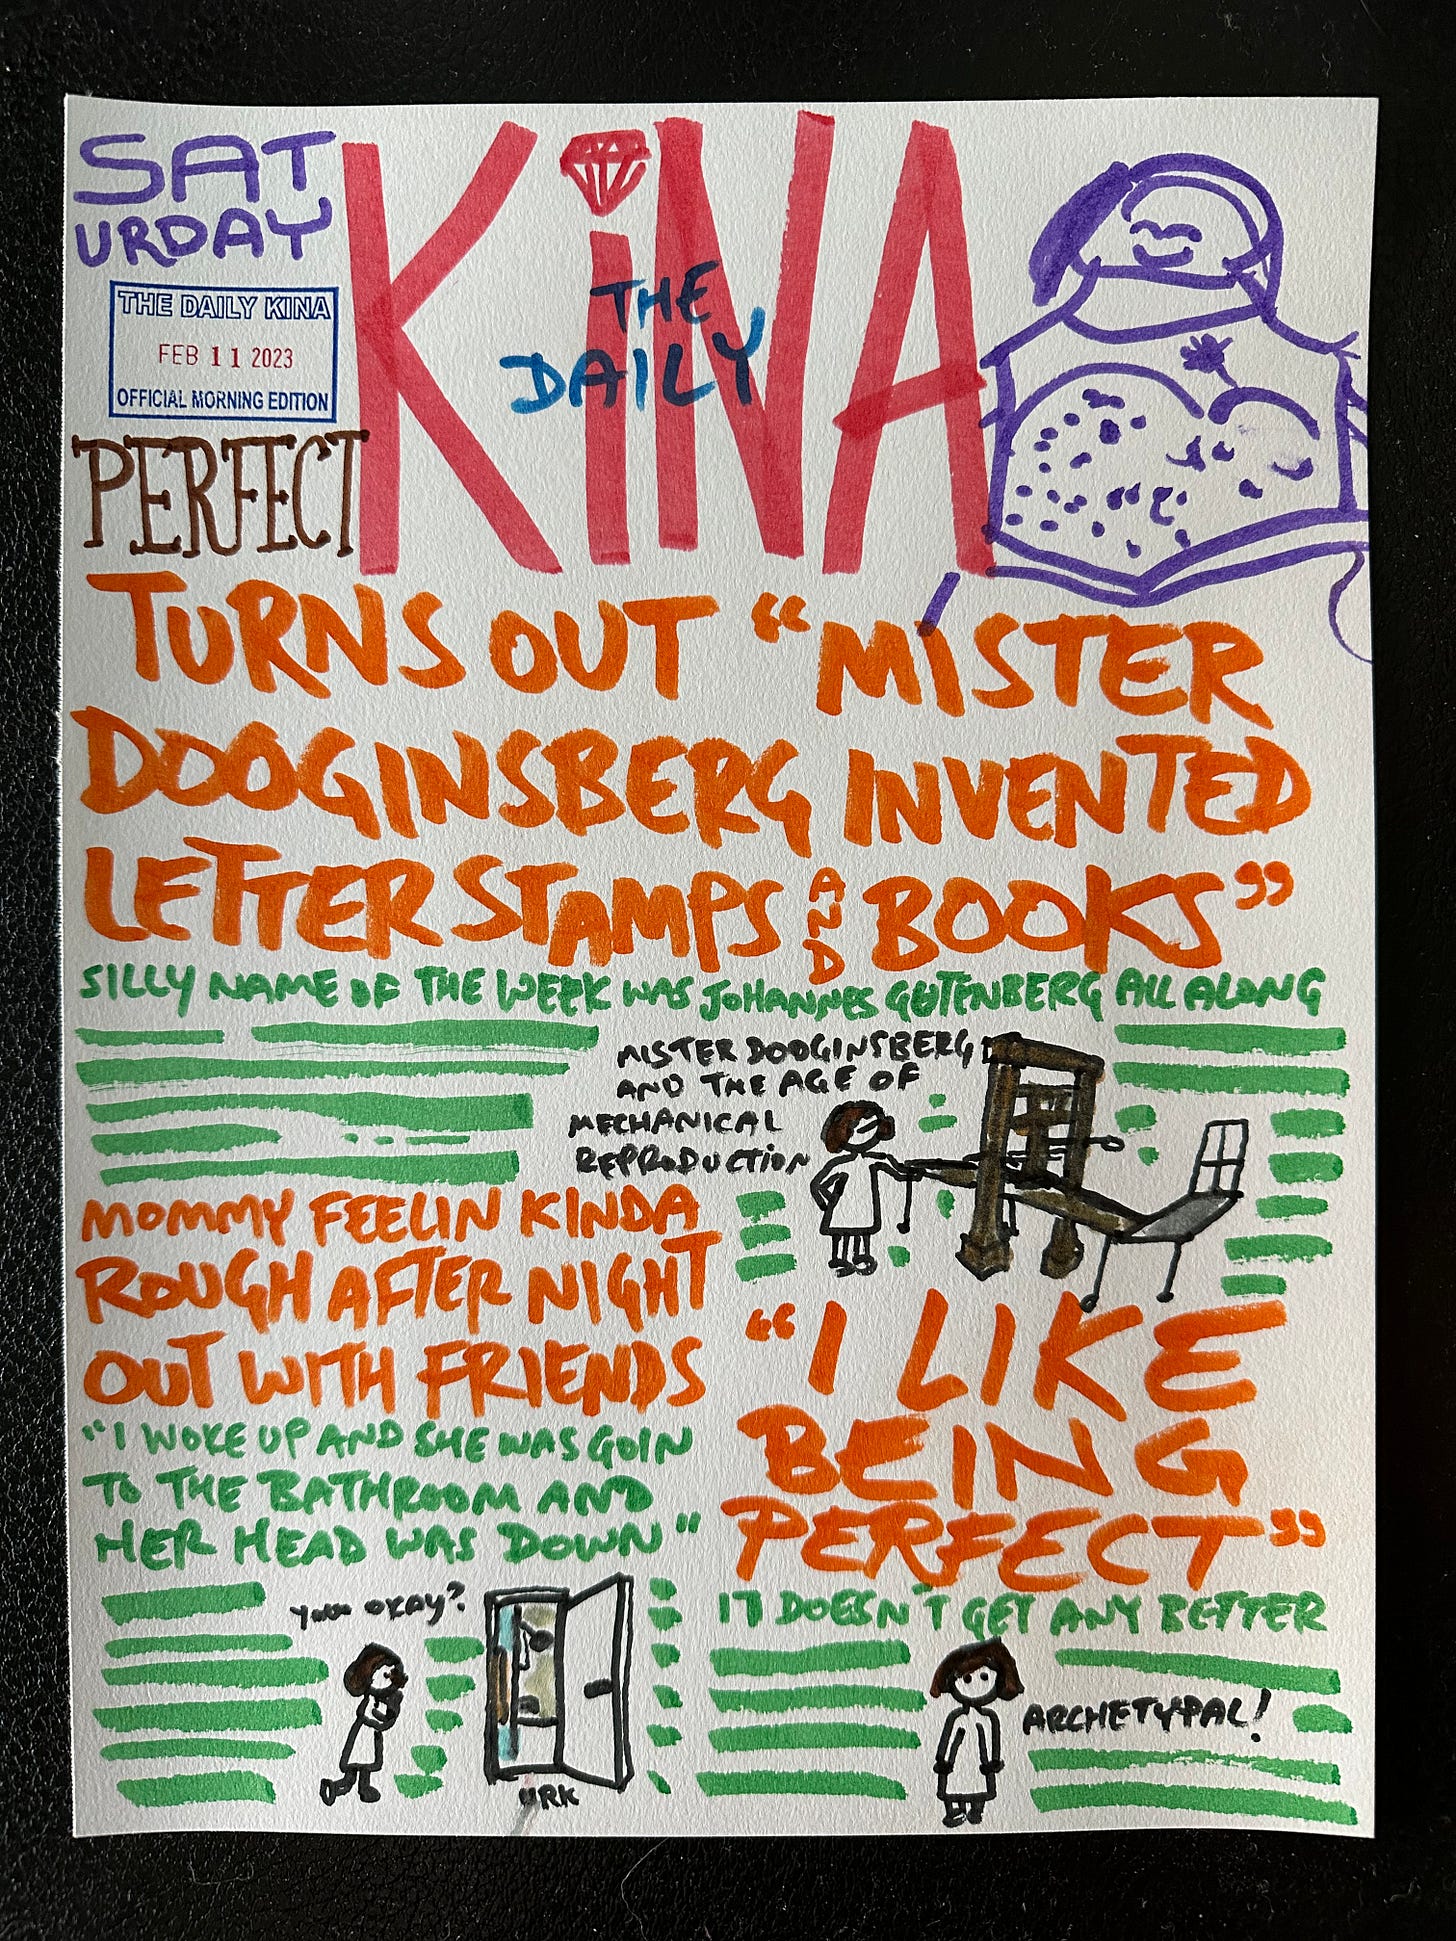 SAT
URDAY
THE DAILY KINA
FEB 11 2023
OFFICIAL MORNING EDITION
PERFECT
KiNA
THE
DAILY
TURNS OUT “MISTER
DOOGINSBERG INVENTED
LETTER STAMPS AND BOOKS”
SILLY NAME OF THE WEEK WAS JOHANNES GUTENBERG ALL ALONG
MISTER DOOGINSBERG
AND THE AGE OF
MECHANICAL
REPRODUCTION
MOMMY FEELIN KINDA
ROUGH AFTER NIGHT
OUT WITH FRIENDS
“I WOKE UP AND SHE WAS GOIN
TO THE BATHROOM AND
HER HEAD WAS DOWN”
you okay?
URK
“I LIKE
BEING
PERFECT”
IT DOESN'T GET ANY BETTER
ARCHETYPAL!